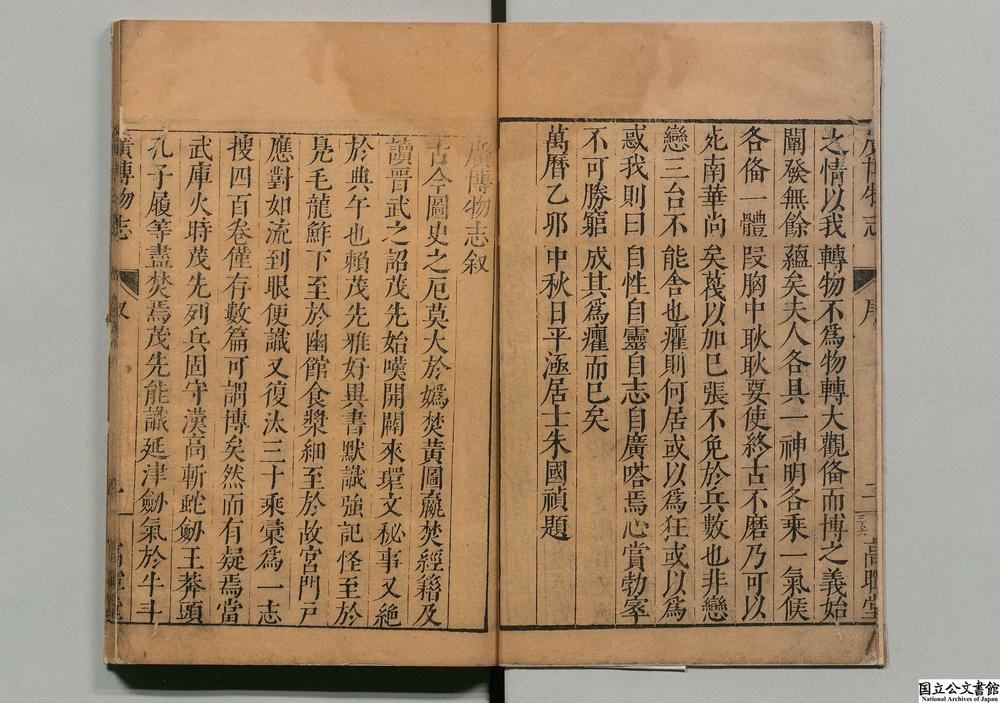 廣博物志
序
二
高暉堂
之情以我轉物不為物轉大觀備而博之義始
闡發無餘蘊矣夫人各具一神明各乘一氣候
各備一體段胸中耿耿要使終古不磨乃可以
死南華尚矣蔑以加已張不免於兵數也非戀
戀三台不能舍也癯則何居或以為狂或以為
惑我則曰自性自靈自志自廣嗒焉心賞勃窣
不可勝窮成其為癯而已矣
萬曆乙卯中秋日平涵居士朱國禎題
廣博物志叙
古今圖史之厄莫大於嬀焚黃圖嬴焚經籍及
讀晋武之詔茂先始嘆開闢來瓌文秘事又絕
於典午也賴茂先雅好異書默識強記怪至於
鳧毛龍鮓下至於幽館食漿細至於故宮門戶
應對如流到眼便識又復汰三十乘彙為一志
搜四百卷僅存數篇可謂博矣然而有疑焉當
武庫火時茂先列兵固守漢高斬蛇劒王莽頭
孔子履等盡焚焉茂先能識延津劒氣於牛斗
廣博物志
叙
一
高暉堂
国立公文書館
National Archives of Japan